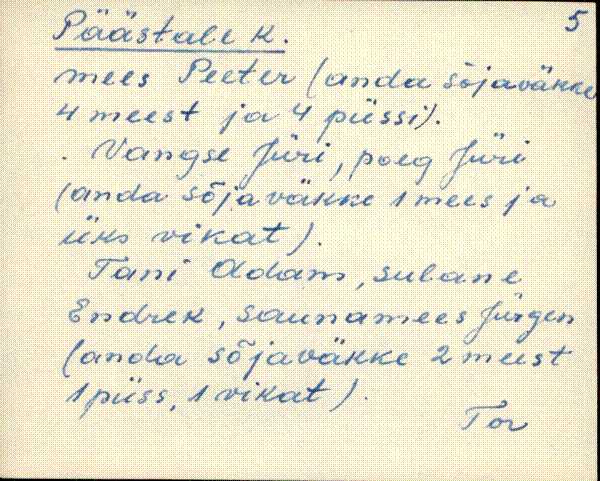 5
Päästale k.
mees Peeter (anda sõjaväkke
4 meest ja 4 püssi).
. Vangse Jüri, poeg Jüri
(anda sõjaväkke 1 mees ja
üks vikat).
Tani Adam, sulane
Endrek, saunamees Jürgen
(anda sõjaväkke 2 meest
1 püss, 1 vikat).
Tor